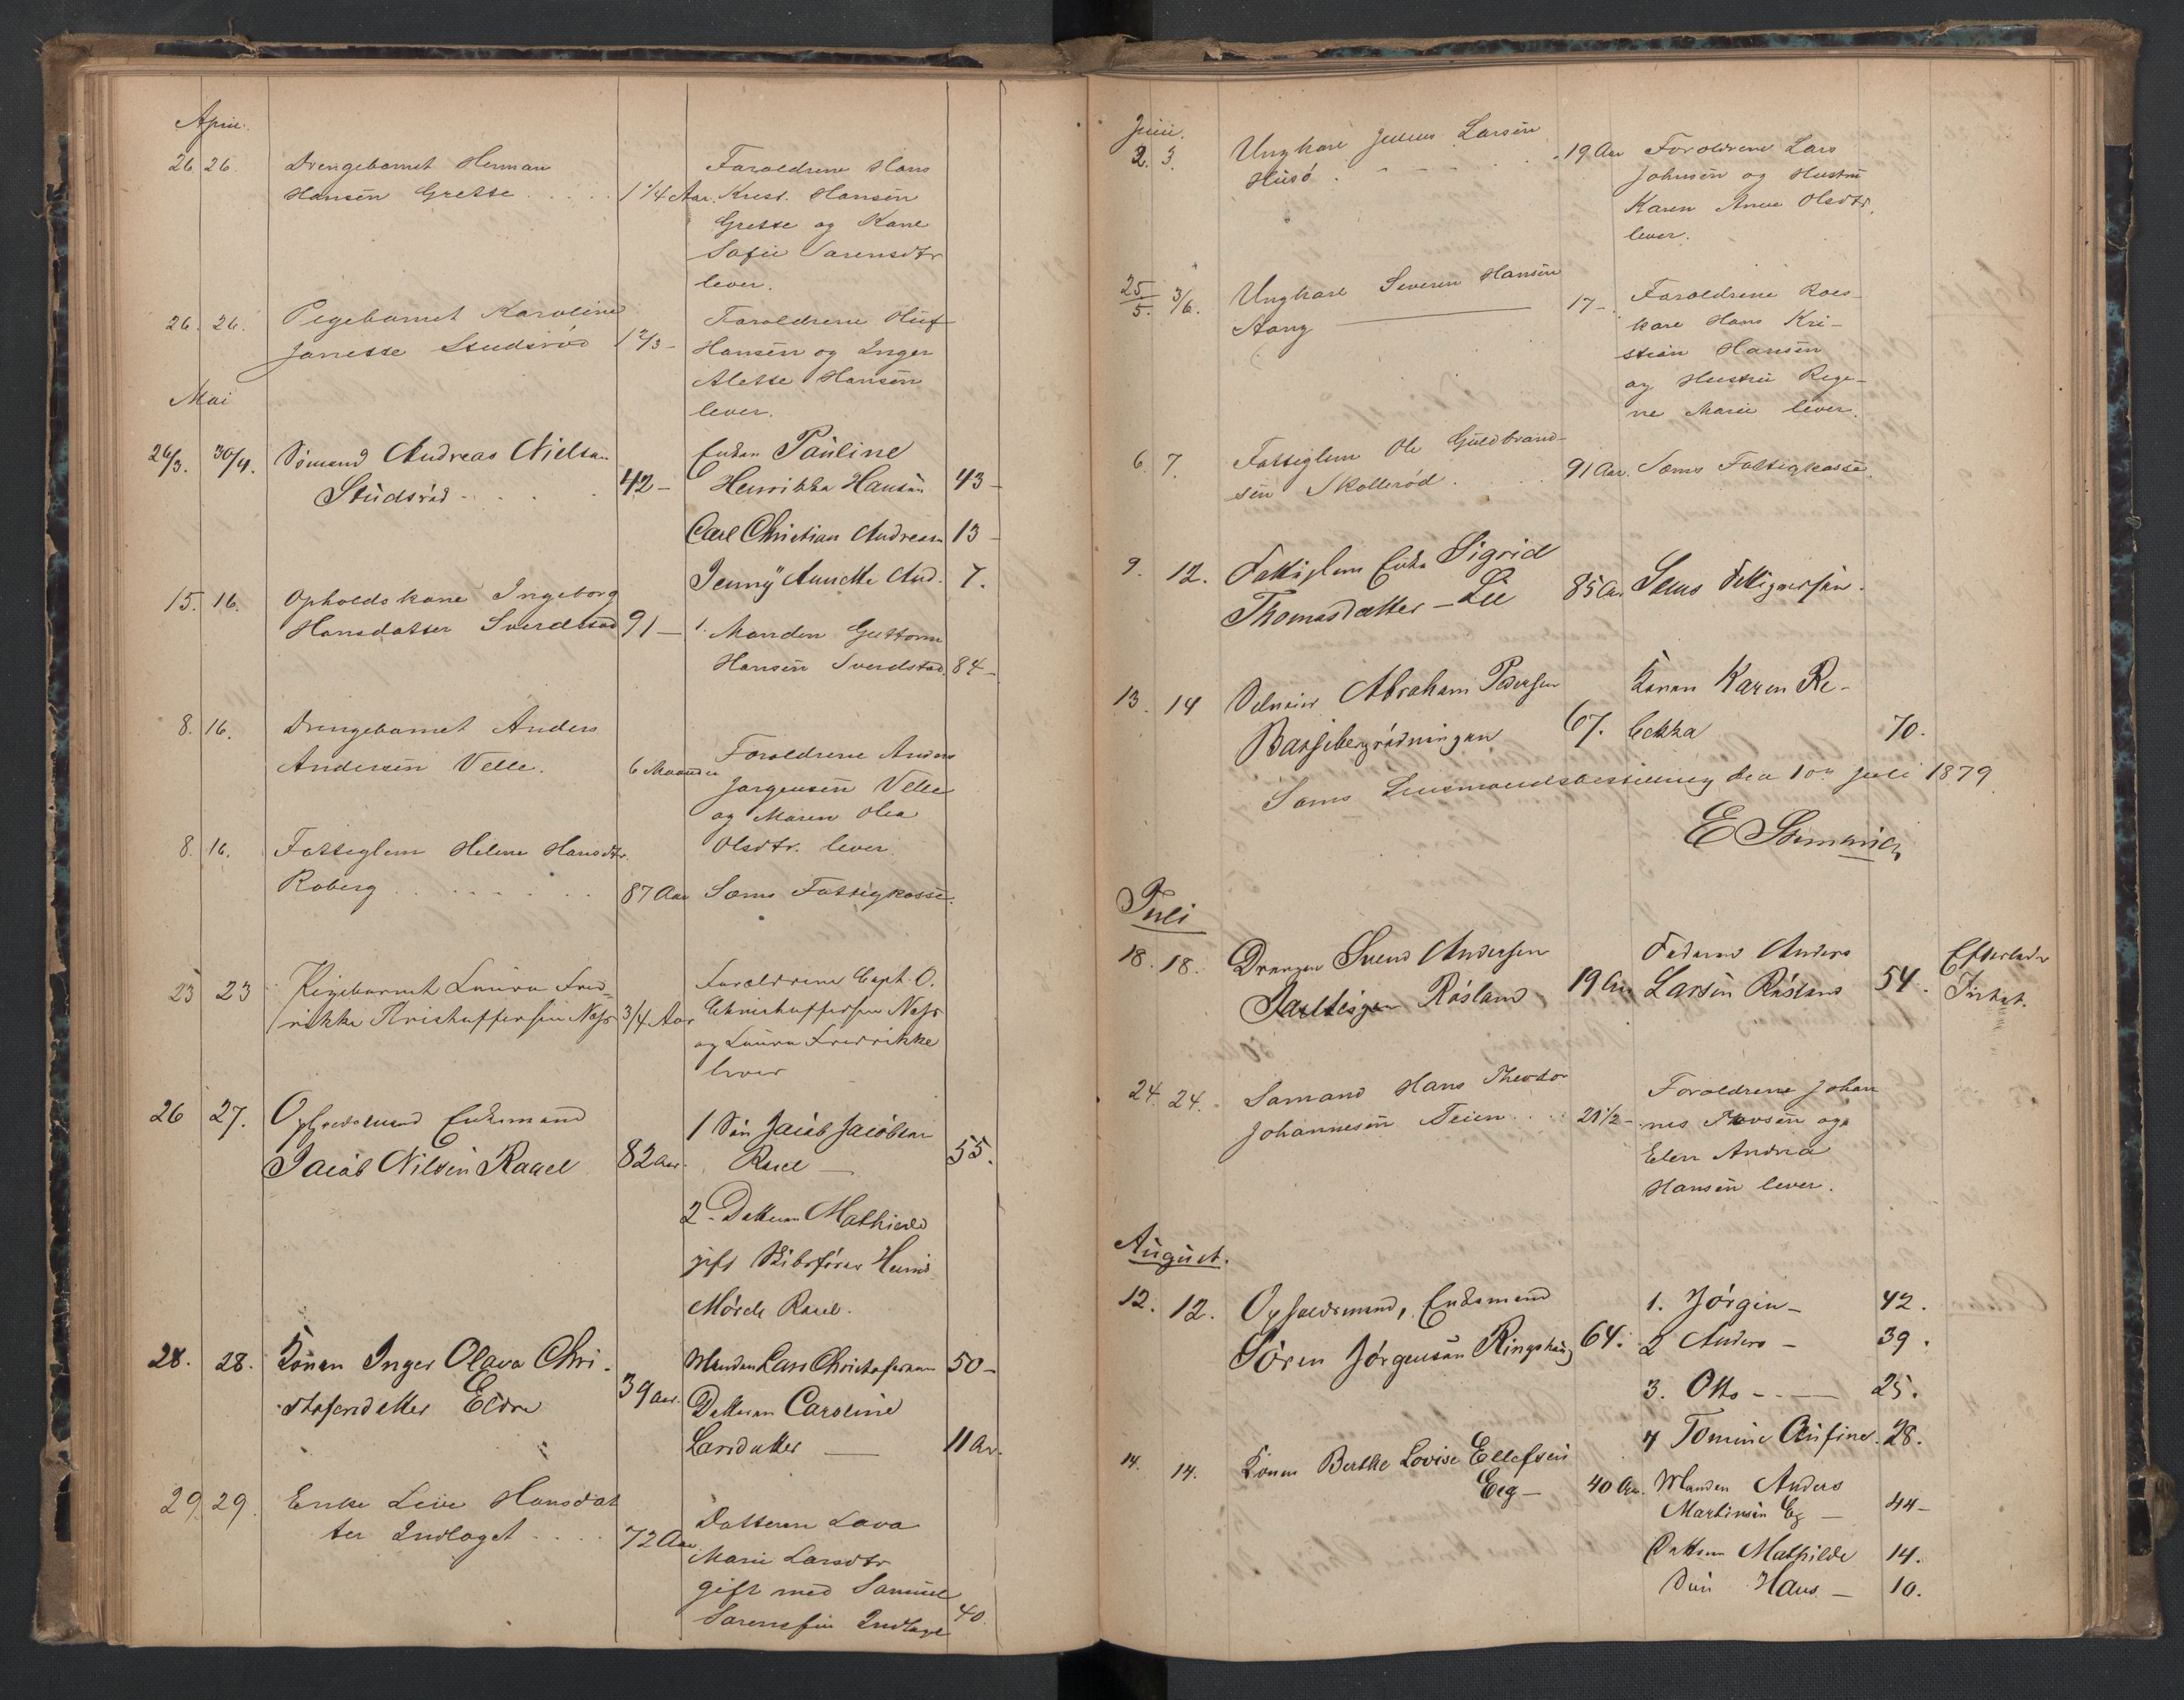 April.
26 26. Drengebarnet Herman
Hansen Grette . . . . . 1 1/4 Aar.
Foraldrene Hans
Krist. Hansen
Grette og Kone
Sofie Sorensdtr
lever.
26. 26. Pigebarnet Karoline
Janette Studsrød 1 2/3 –
Foraldrene Oluf
Hansen og Inger
Alette Hansen
lever.
Mai
26/3. 30/4. Sömand Andreas Nielsen
Studsröd . . . . 42 –
Enken Pauline
Henrikka Hansen 43 –
Carl Christian Andreasen 13 –
Jenny Annette And. 7.
15. 16. Opholdskone Ingeborg
Hansdatter Sverdstad 91 –
1. Manden Guttorm
Hansen Sverdstad. 84 –
8. 16. Drengebarnet Anders
Andersen Velle. 6 Maaneder
Foraldrene Anders
Jorgensen Velle
og Maren Olea
Olsdtr. lever.
8. 16. Fattiglem Helene Hansdtr.
Roberg . . . . . . . 87 Aar
Sems Fattigkasse.
23 23 Pigebarnet Laura Fred-
rikke Kristoffersen Næss 3/4 Aar
Forældrene Capt. O.
Christoffersen Næss
og Laura Fredrikke
lever
26 27. Opholdsmand Enkemand
Jacob Nilsen Rauel 82 Aar.
1 Sön Jacob Jacobsen
Rauel — 55.
2. Datteren Mathilde
gift Skibsförer
Mörch Rauel.
28. 28. Konen Inger Olava Chri-
stofersdatter Eldre 39 Aar.
Manden Lars Christofersen 50 –
Datteren Caroline
Larsdatter — 11 Ar.
29. 29. Enke Live Hansdat
ter Indlaget . . . . 72 Aar
Datteren Lava
Marie Larsdtr
gift med Samuel
Sorensen Indlaget 40.
Juni.
2. 3. Ungkarl Julius Larsen
Husö . – – – . . 19 Aar
Foroldrene Lars
Johnsen og Hustru
Karen Anne Olsdtr.
lever.
25/5. 3/6. Ungkarl Severin Hansen
Aang — 17 –
Foroldrene
kare Hans Kri-
stian Hansen
og Hustru Rege-
ne Marie lever.
6. 7. Fattiglem Ole Guldbrand-
sen Skollerød . . . 91 Aar.
Sems Fattigkasse.
9. 12. Fattiglem Enke Sigrid
Thomasdatter – Lie 85 Ar.
Sems Fattigvæsen.
13. 14 Selveier Abraham Pedersen
67.
Konen Karen Re-
bekka 70.
Sems Lensmandsbestilling den 1ste Juli 1879
E
Juli
18. 18. Drengen Svend Andersen
Rösland 19 Ar.
Faderen Anders
Larsen Rösland 54.
Efterlader
Intet.
24. 24. Somand Hans Theodor
Johannesen Teien . . . 21 1/2 –
Foroldrene Johan
nes og
Elen Andrea
Hansen lever.
August.
12. 12. Opholdsmand, Enkemand
Sören Jörgensen Ringshaug 64.
1. Jörgen – 42.
2 Anders – 39.
3. Otto – – — 25.
4 Tomine 28.
14. 14. Konen Berthe Lovise Ellefsen
Eeg – 40 Ar.
Manden Anders
Martinsen Eg — 44 –
Datteren Mathilde 14.
Sön Hans – 10.